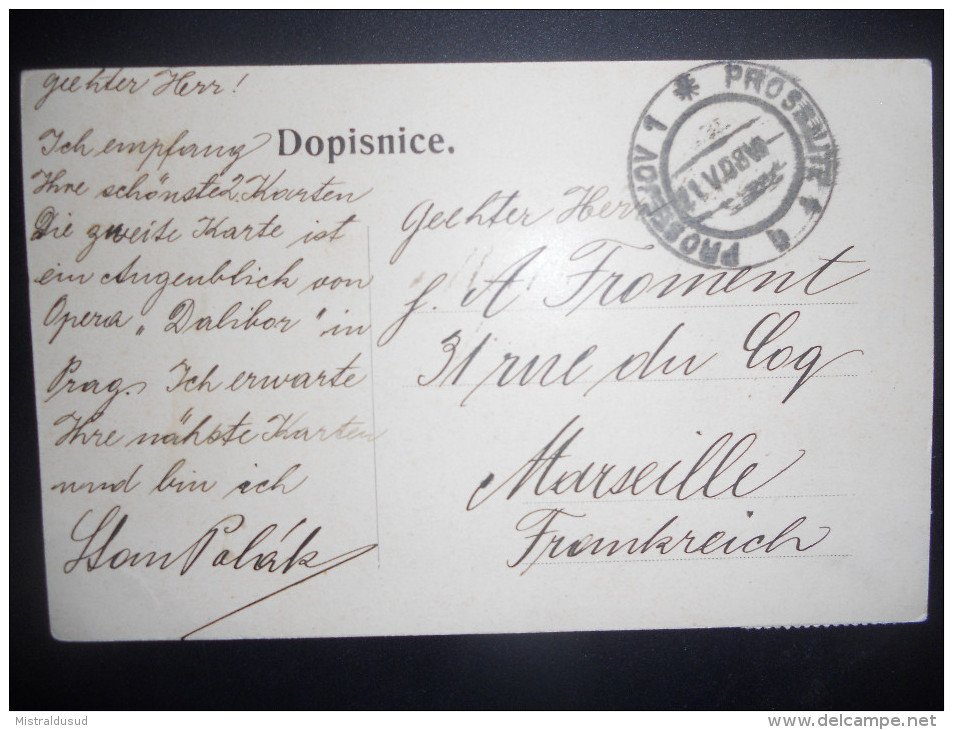 geehter Herr!
Ich empfang
Ihre schönste 2 Karten
Die zweite Karte ist
ein Augenblick von
Opera „Dalibor" in
Prag. Ich erwarte
Ihre nähste Karten
und bin ich
Stan Polák
Dopisnice.
PROSSNITZ 1
PROSTĚJOV 1
Geehter Herr
A Froment
31 rue du Coq
Marseille
Frankreich
Mistraldusud
delcampe.net